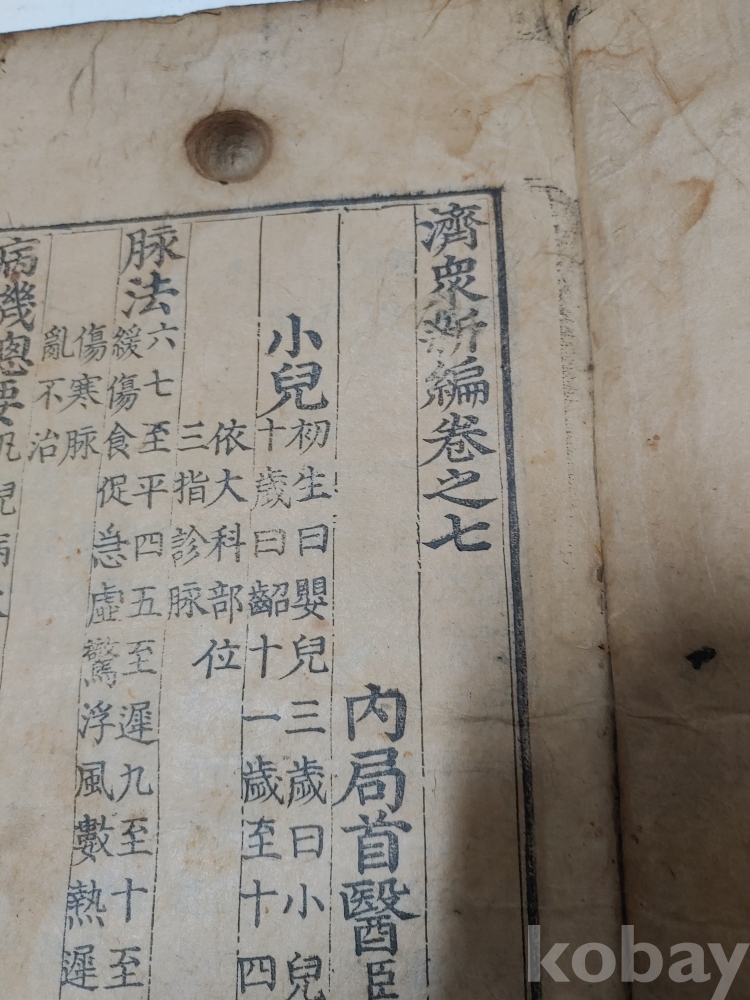 濟衆新編卷之七
內局首醫臣
小兒
初生曰嬰兒三歲曰小兒
十歲曰齠十一歲至十四
依大科部位
三指診脉
脉法
六七至平四五至遲九至十至
緩傷食促急虛驚浮風數熱遲
傷寒脉
亂不治
病機緫要
凡兒病
kobay